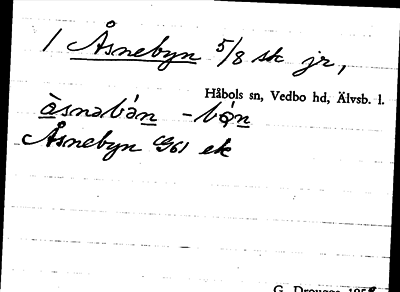 1 Åsnebyn 5/8 sk jr,
Håbols sn, Vedbo hd, Älvsb. l.
àsnəbà́n - bǫ́n
Åsnebyn G61 ek
G. Drougge 1958